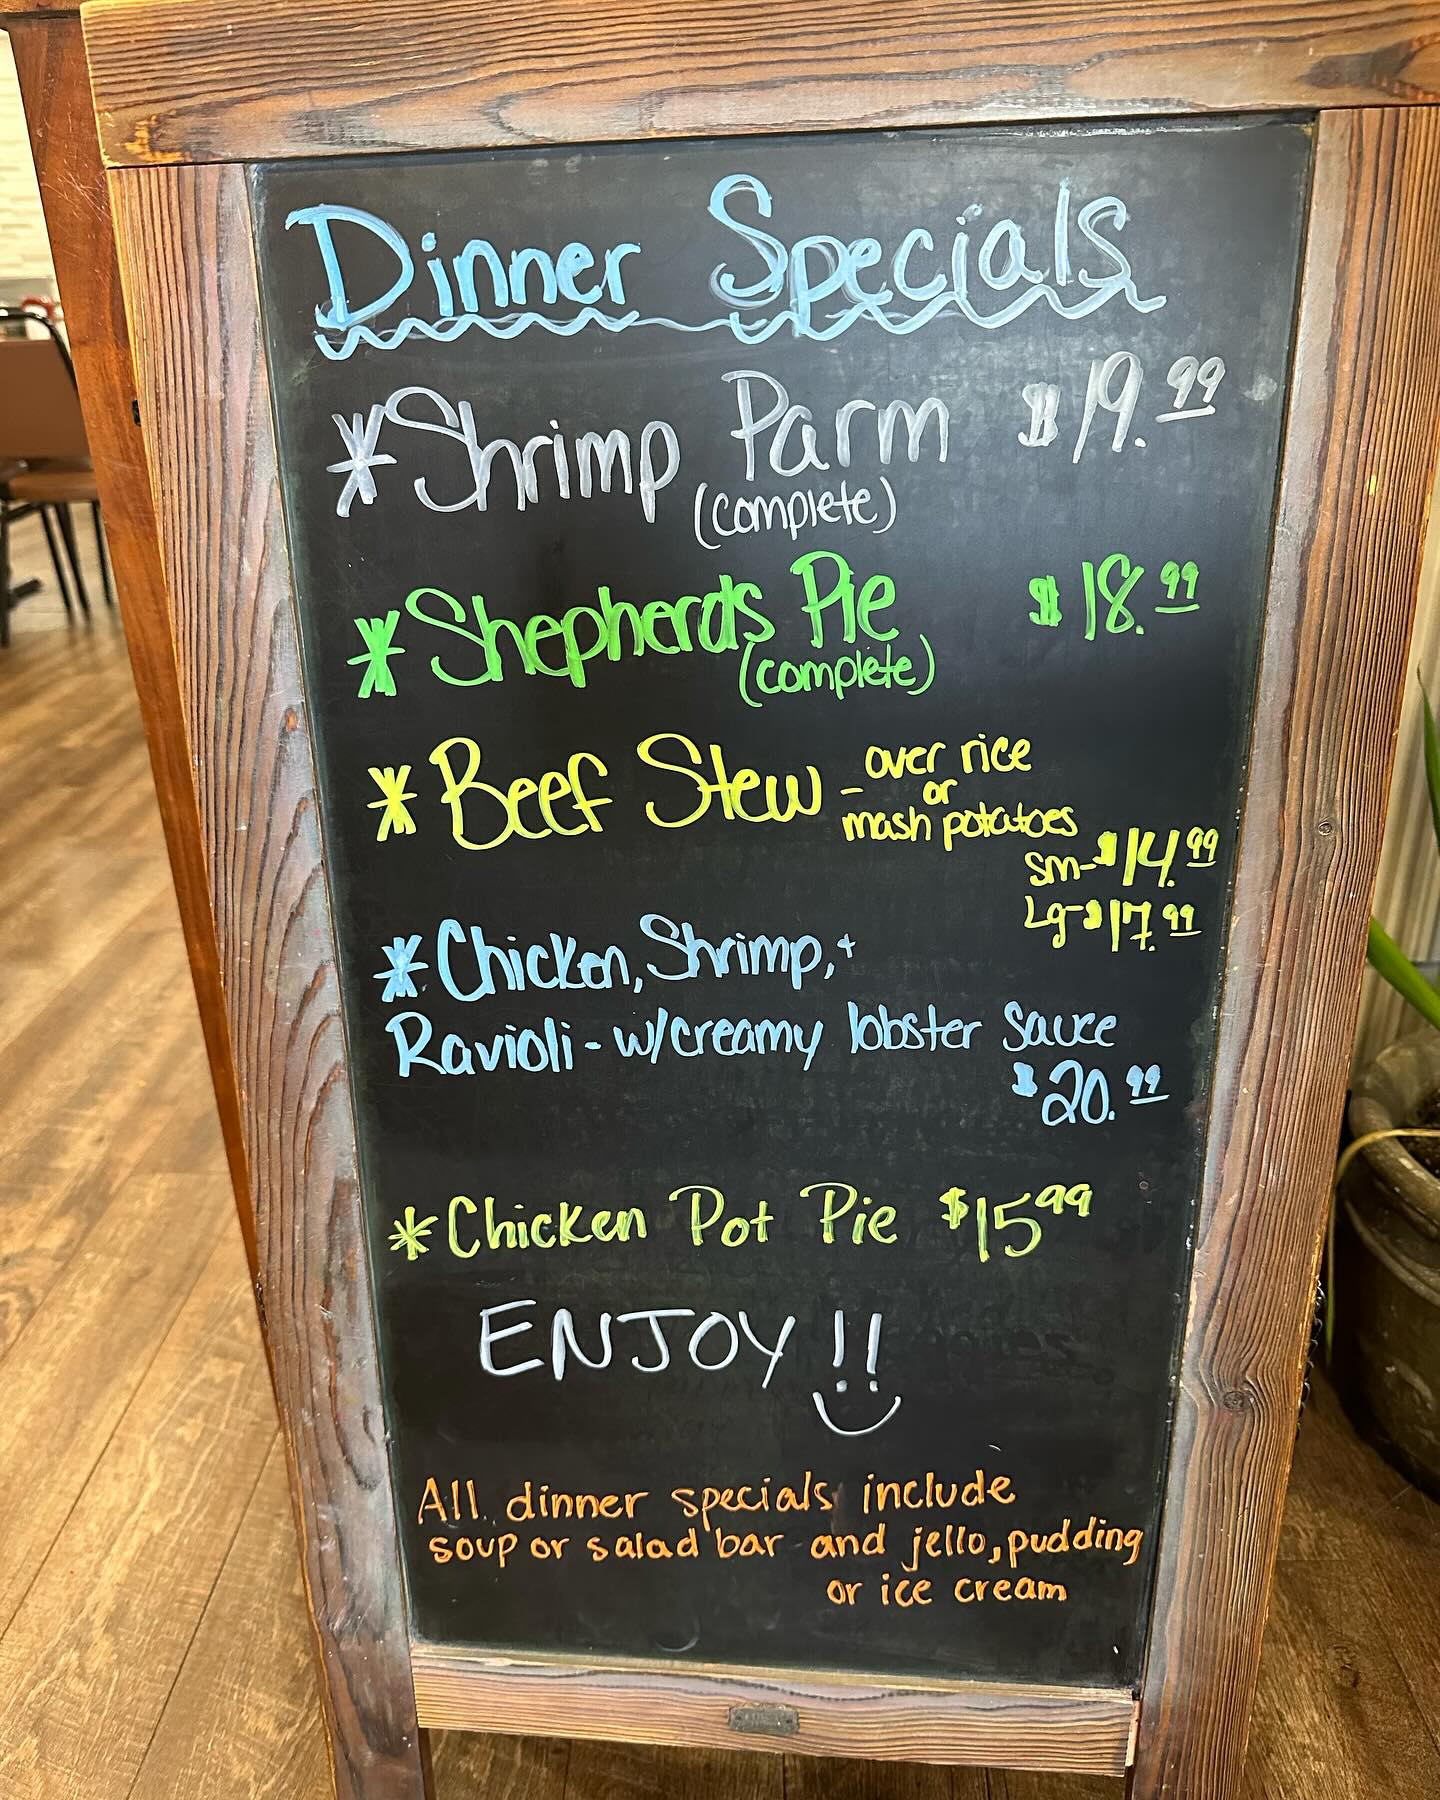 Dinner Specials
*Shrimp Parm $19.99
(complete)
*Shepherds Pie $18.99
(complete)
*Beef Stew - over rice
or
mash potatoes
sm-$14.99
Lg-$17.99
*Chicken, Shrimp, +
Ravioli - w/creamy lobster sauce
$20.99
*Chicken Pot Pie $15.99
ENJOY!!
All dinner specials include
soup or salad bar and jello, pudding
or ice cream